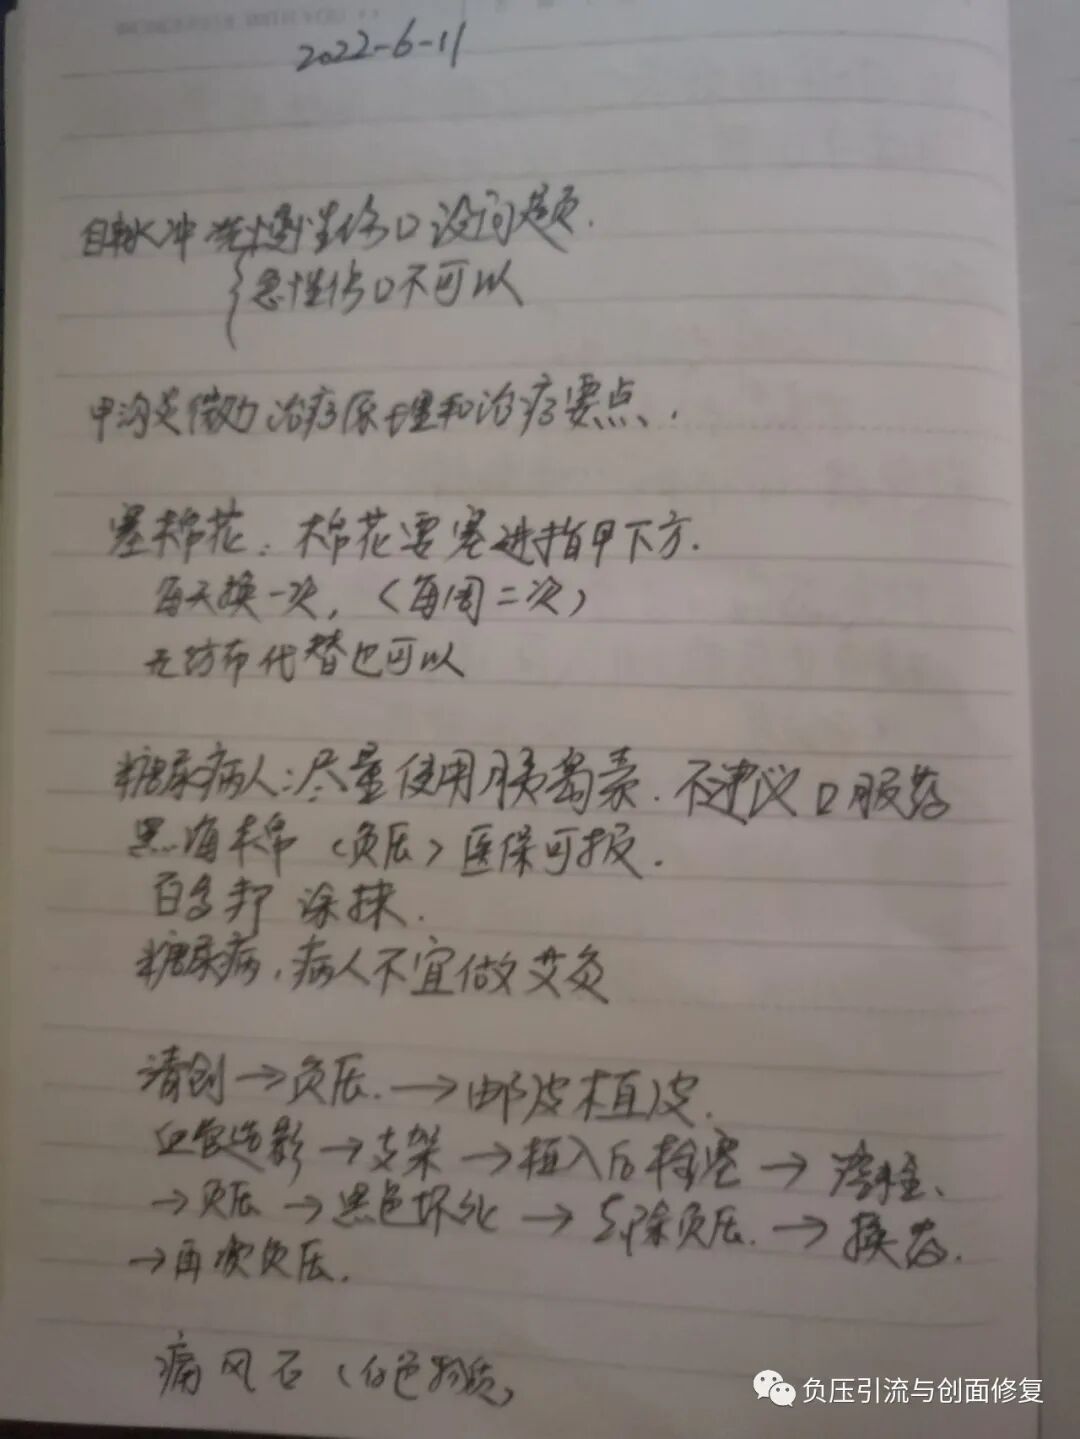 2022-6-11
自来水冲洗慢性伤口没问题.
急性伤口不可以
甲沟炎微力治疗原理和治疗要点.
塞棉花：棉花要塞进指甲下方.
每天换一次，（每周二次）
无纺布代替也可以
糖尿病人：尽量使用胰岛素.不建议口服药
黑海棉（负压）医保可报.
百多邦 涂抹.
糖尿病.病人不宜做艾灸
清创→负压.→邮皮植皮.
血管造影→支架→植入后栓塞→溶栓、
→负压→黑色坏死→去除负压.→换药.
→再次负压.
痛风石（白色物质）
负压引流与创面修复